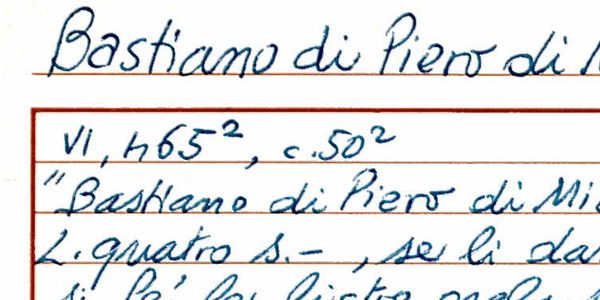 Bastiano di Piero di
VI, h65², c.50²
"Bastiano di Piero di Mi
L. quatro s.–, se li da
si fè